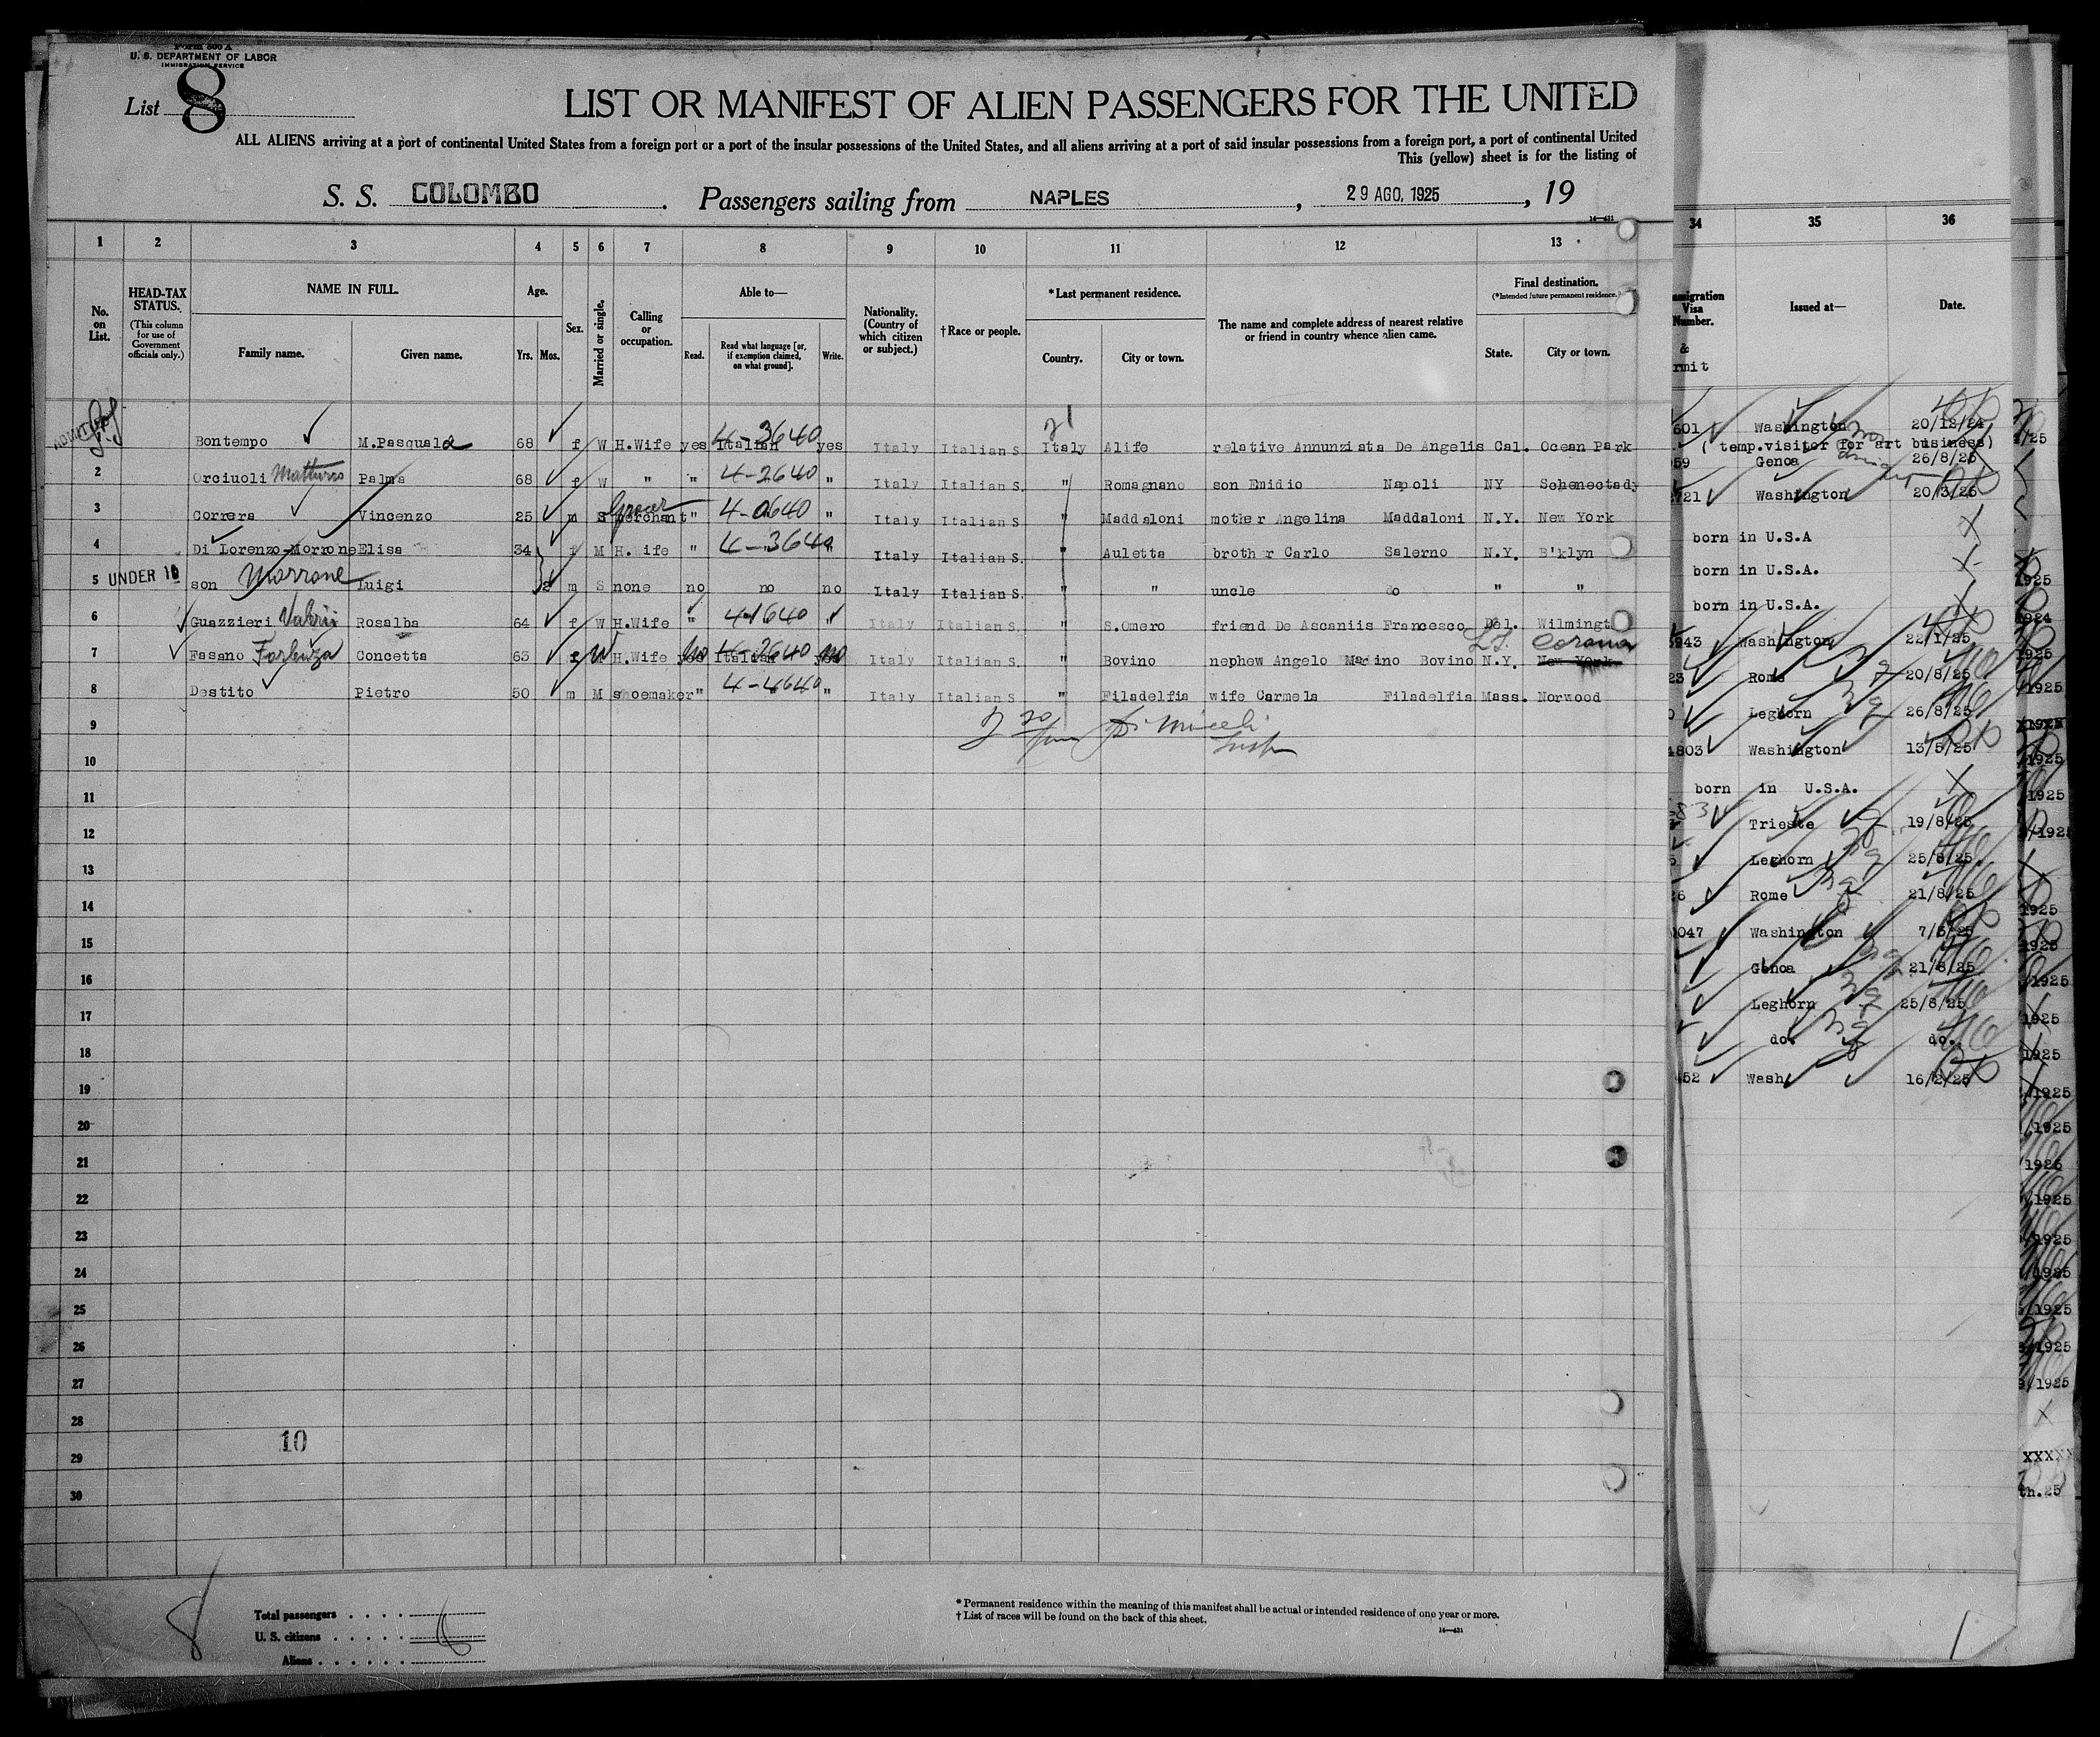 Form 500 A
U. S. DEPARTMENT OF LABOR
IMMIGRATION SERVICE
List 8
LIST OR MANIFEST OF ALIEN PASSENGERS FOR THE UNITED
ALL ALIENS arriving at a port of continental United States from a foreign port or a port of the insular possessions of the United States, and all aliens arriving at a port of said insular possessions from a foreign port, a port of continental United
This (yellow) sheet is for the listing of
S. S. COLOMBO . Passengers sailing from NAPLES , 29 AGO, 1925 , 19
14—431
1 2 3 4 5 6 7 8 9 10 11 12 13
No. on List.
HEAD-TAX STATUS.
(This column for use of Government officials only.)
NAME IN FULL.
Family name. Given name.
Age.
Yrs. Mos.
Sex.
Married or single.
Calling or occupation.
Able to—
Read. Read what language [or, if exemption claimed, on what ground]. Write.
Nationality. (Country of which citizen or subject.)
†Race or people.
*Last permanent residence.
Country. City or town.
The name and complete address of nearest relative or friend in country whence alien came.
Final destination.
(*Intended future permanent residence.)
State. City or town.
ADMITTED
Bontempo M.Pasquala 68 f W H.Wife yes Italian 4-3640 yes Italy Italian S. Italy Alife relative Annunziata De Angelis Cal. Ocean Park
2 Orciuoli Matturro Palma 68 f W " " 4-2640 " Italy Italian S. " Romagnano son Emidio Napoli NY Schenectady
3 Correra Vincenzo 25 m S merchant Grocer " 4-0640 " Italy Italian S. " Maddaloni mother Angelina Maddaloni N.Y. New York
4 Di Lorenzo-Morrone Elisa 34 f M H.Wife " 4-3640 " Italy Italian S. " Auletta brother Carlo Salerno N.Y. B'klyn
5 UNDER 16 son Morrone Luigi m S none no no no Italy Italian S. " " uncle do " "
6 Guazzieri Valerii Rosalba 64 f W H.Wife " 4-1640 " Italy Italian S. " S.Omero friend De Ascaniis Francesco Del. Wilmingt
7 Fasano Concetta 63 f W H.Wife yes no Italian 4-2640 yes no Italy Italian S. " Bovino nephew Angelo Marino Bovino N.Y. New York L.I. Corona
8 Destito Pietro 50 m M shoemaker " 4-4640 " Italy Italian S " Filadelfia wife Carmela Filadelfia Mass. Norwood
9
10
11
12
13
14
15
16
17
18
19
20
21
22
23
24
25
26
27
28
10
29
30
8
Total passengers
U. S. citizens
Aliens
* Permanent residence within the meaning of this manifest shall be actual or intended residence of one year or more.
† List of races will be found on the back of this sheet.
14—431
34 35 36
Visa Number. Issued at— Date.
&
601 Washington 20/12/24
( temp.visitor for art business)
59 Genoa 26/8/25
721 Washington 20/3/25
born in U.S.A
born in U.S.A.
born in U.S.A.
943 Washington 22/1/25
23 Rome 20/8/25
Leghorn 26/8/25
803 Washington 13/5/25
born in U.S.A.
Trieste 19/8/25
Leghorn 25/8/25
26 Rome 21/8/25
047 Washington 7/5/25
Genoa 21/8/25
Leghorn 25/8/25
do. do.
452 Wash. 16/2/25